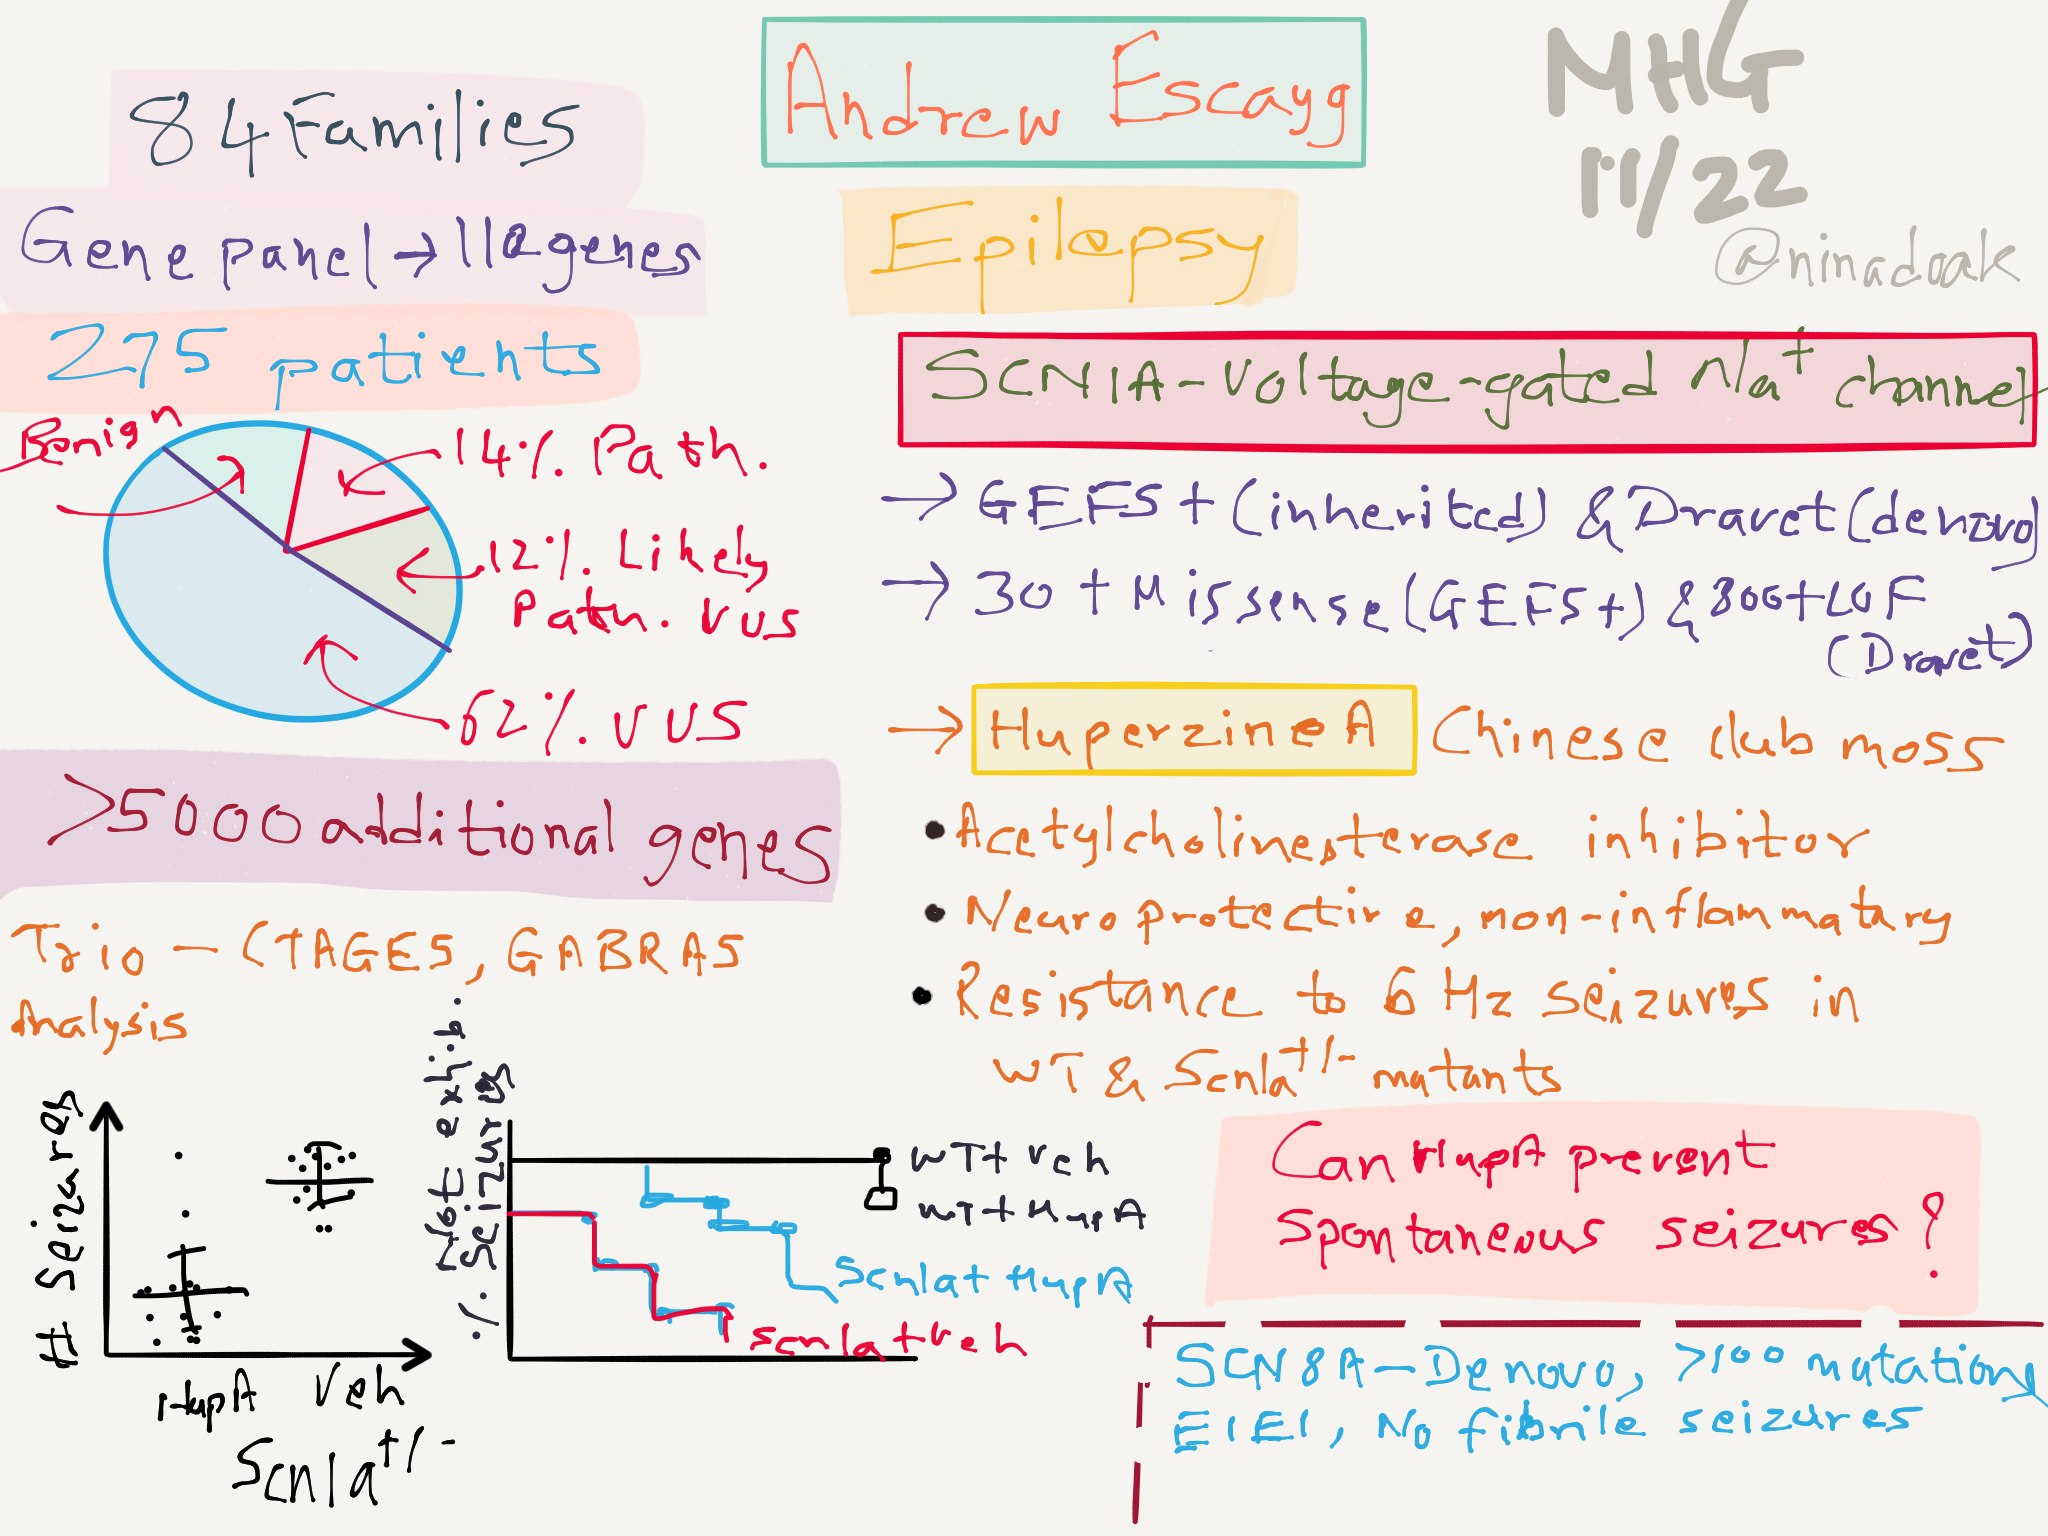 Andrew Escayg
MHG
11/22
@ninadoak
Epilepsy
84 Families
Gene panel → 110 genes
275 patients
Benign
14% Path.
12% Likely
Path. VUS
62% VUS
>5000 additional genes
Trio - CTAGE5, GABRA5
Analysis
# Seizures
HupA Veh
Scn1a+/-
% Not exhib.
Seizures
WT+Veh
WT+HupA
Scn1a+HupA
Scn1a+Veh
SCN1A-Voltage-gated Na+ channel
→ GEFS+ (inherited) & Dravet (denovo)
→ 30+ Missense (GEFS+) & 800+ LOF
(Dravet)
→ Huperzine A Chinese club moss
• Acetylcholinesterase inhibitor
• Neuroprotective, non-inflammatary
• Resistance to 6 Hz seizures in
WT & Scn1a+/- mutants
Can HupA prevent
spontaneous seizures?
SCN8A-Denovo, >100 mutations
EIEI, No fibrile seizures